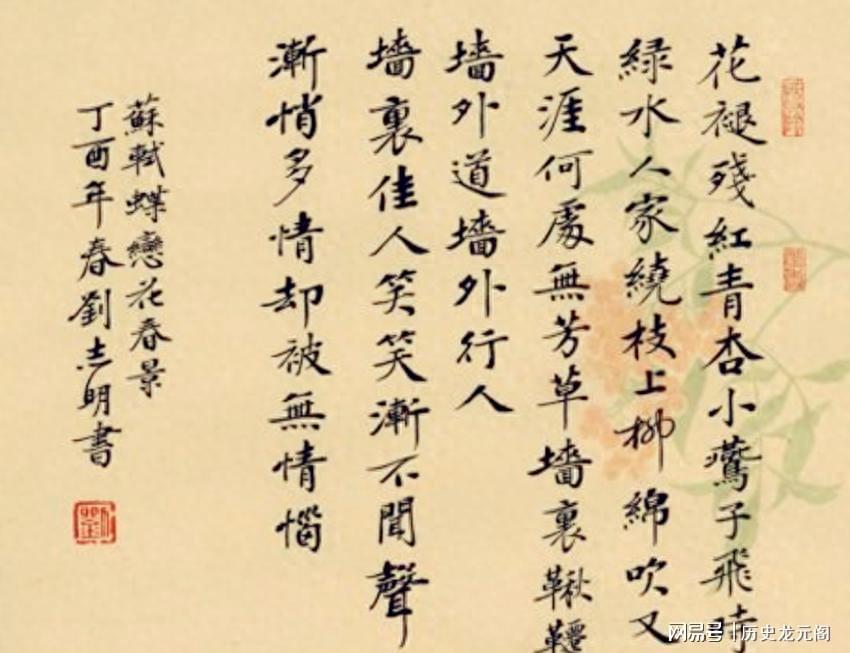 花褪殘紅青杏小鷰子飛時
緑水人家繞枝上柳綿吹又
天涯何處無芳草墻裏鞦韆
墻外道墻外行人
墻裏佳人笑笑漸不聞聲
漸悄多情却被無情惱
蘇軾蝶戀花春景
丁酉年春劉志明書
网易号 | 历史龙元阁